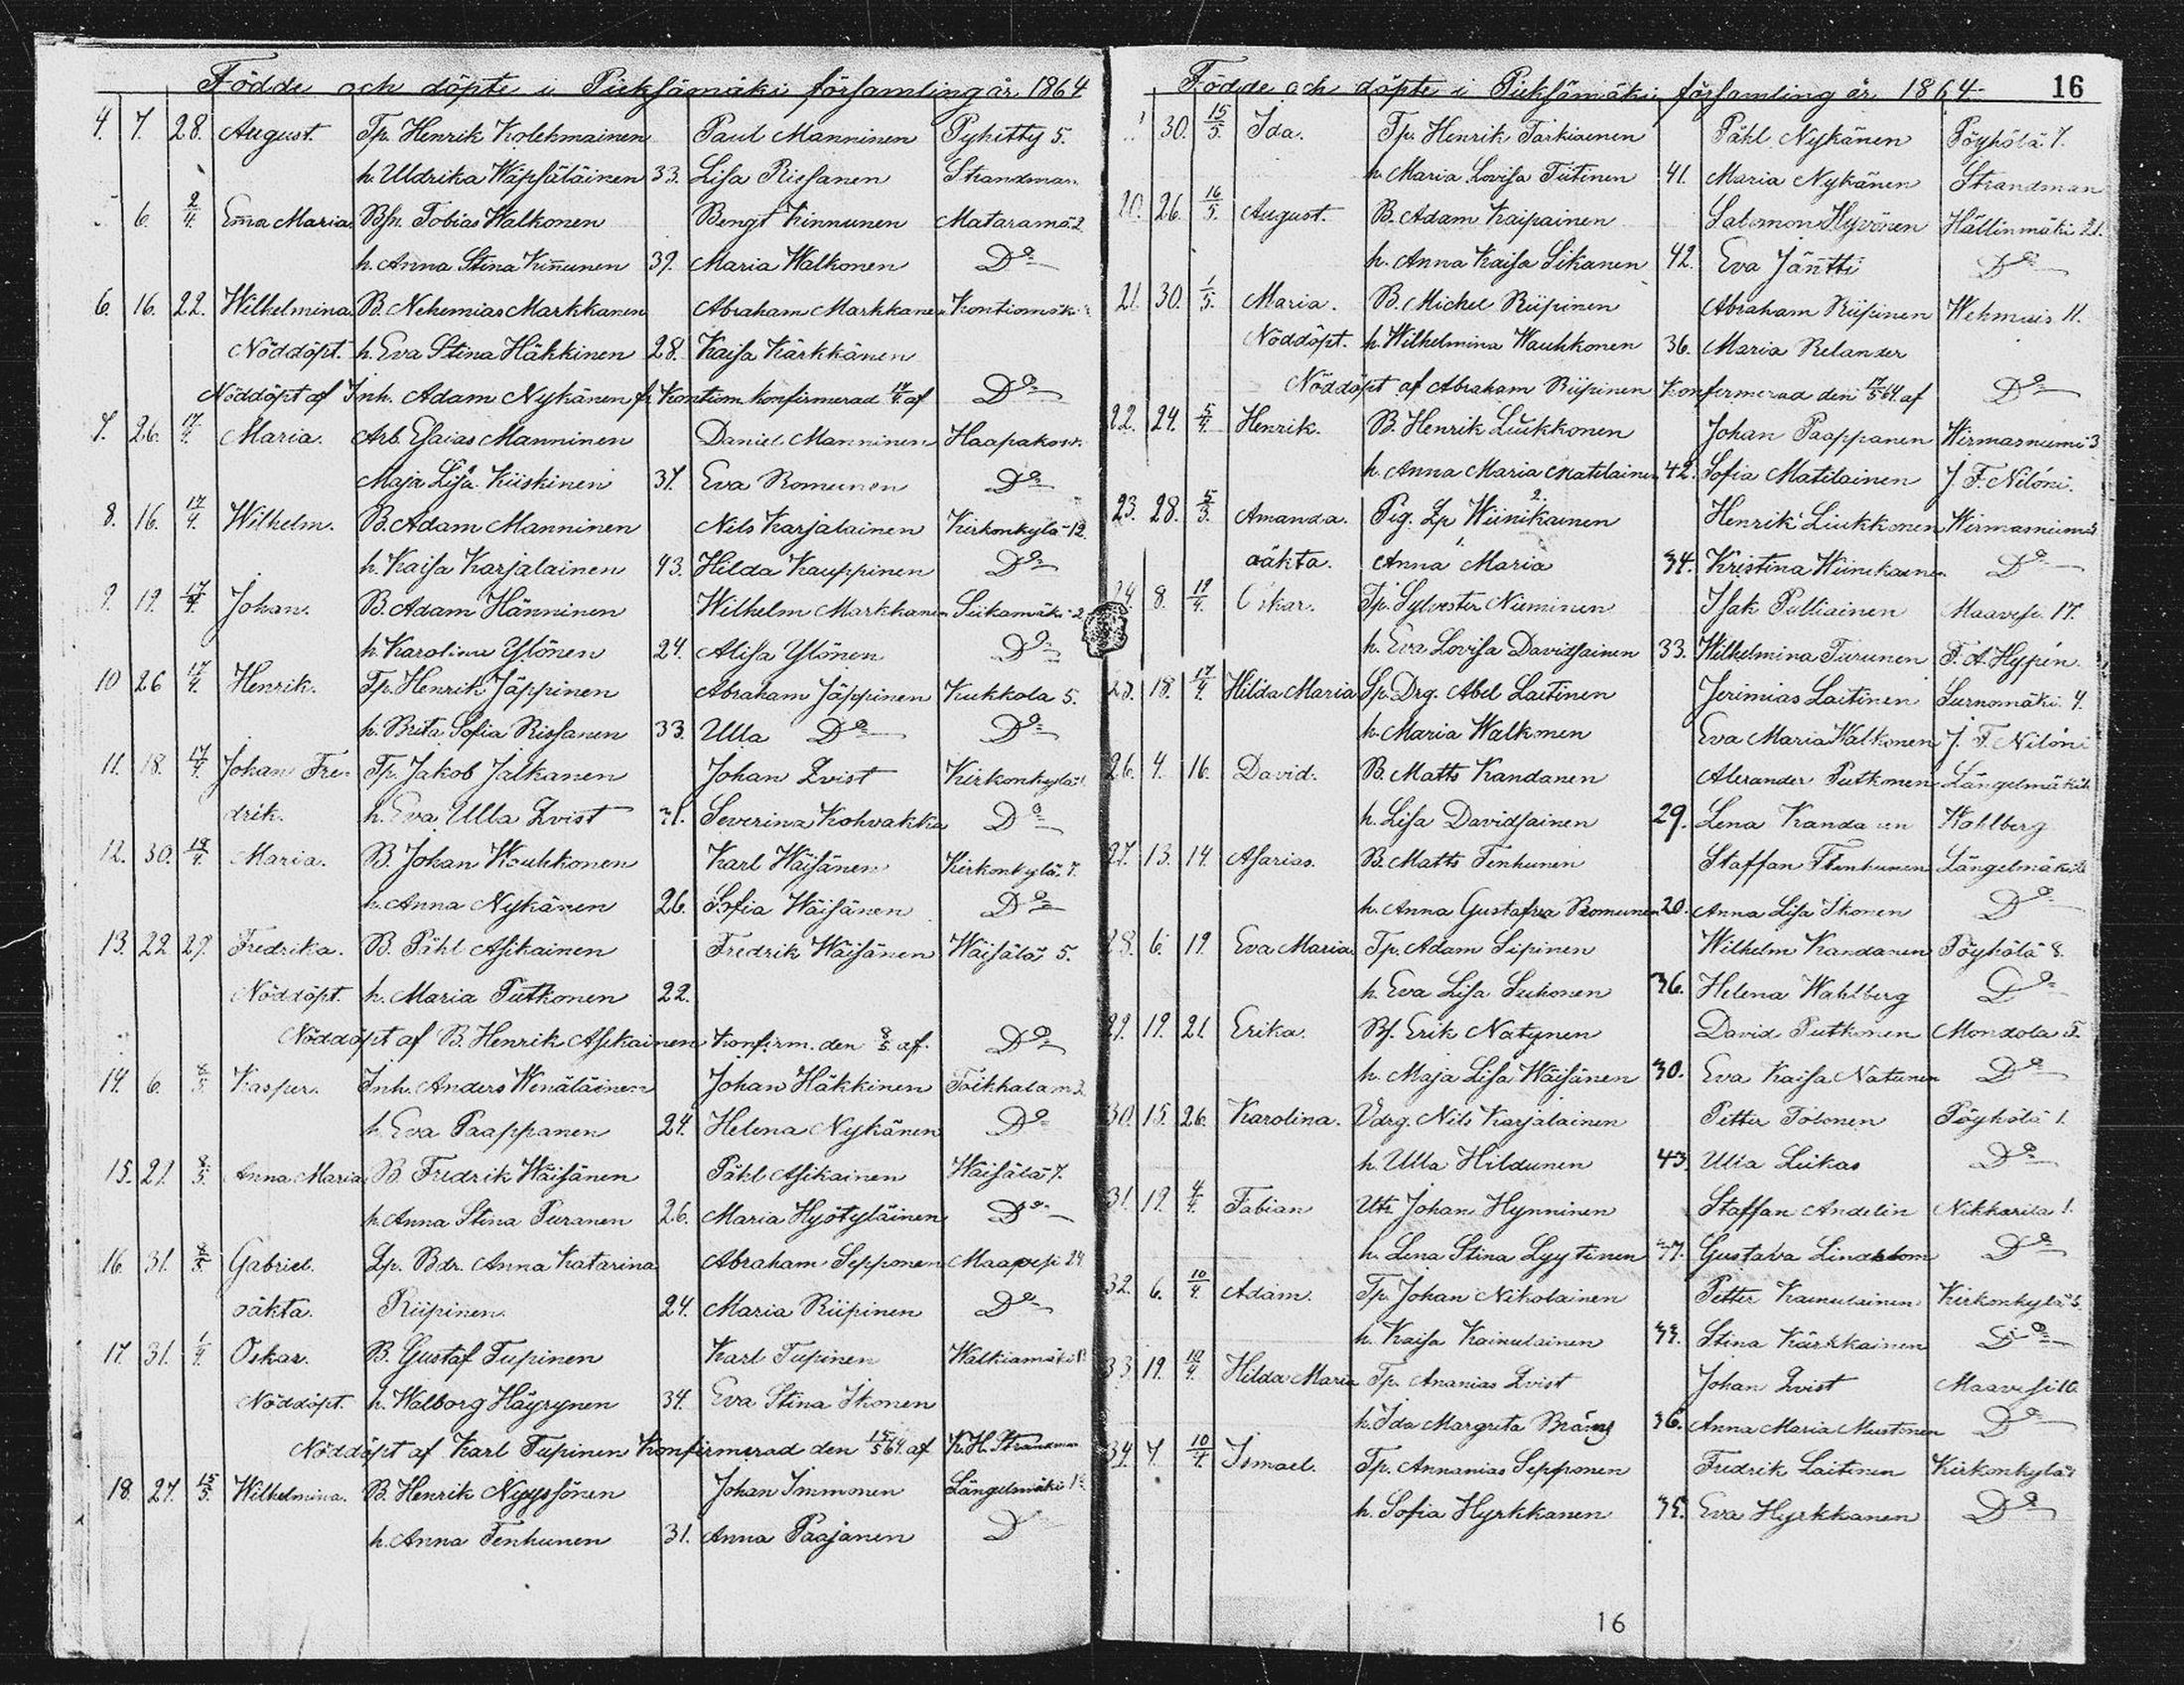 Födde och döpte i Pieksämäki församling år 1864
4. 7. 28. August. Tp. Henrik Kolehmainen Paul Manninen Pyhitty 5.
h. Uldrika Wäpsäläinen 33. Lisa Rissanen Strandman
6. 2/4. Em̄a Maria Bsn. Tobias Walkonen Bengt Kinnunen Mataramä. 2
h. Anna Stina Kin̄unen 39. Maria Walkonen Do
6. 16. 22. Wilhelmina B. Nehemias Markkanen Abraham Markkanen Kontiomäki
Nöddöpt. h. Eva Stina Häkkinen 28. Kaisa Kärkkänen
Nöddöpt af Inh. Adam Nykänen fr. Kontiom konfirmerad 17/4 af Do
7. 26. 17/4. Maria. Arb. Esaias Manninen Daniel Manninen Haapakosk.
Maja Lisa Kiiskinen 37. Eva Romunen Do
8. 16. 17/4. Wilhelm. B. Adam Manninen Nils Karjalainen Kirkonkylä 12.
h. Kaisa Karjalainen 43. Hilda Kauppinen Do
9. 19. 17/4. Johan. B. Adam Hänninen Wilhelm Markkanen Siikamäki 2
h. Karolina Ylönen 24. Alisa Ylönen Do
10 26 17/4. Henrik. Tp. Henrik Jäppinen Abraham Jäppinen Kukkola 5.
h. Brita Sofia Rissanen 33. Ulla Do Do
11. 18. 17/4. Johan Fre- Tp. Jakob Jalkanen Johan Qvist Kirkonkylä
drik. h. Eva Ulla Qvist Severina Kohvakka Do
12. 30. 17/4. Maria. B. Johan Wouhkonen Karl Wäisänen Kirkonkylä. 7.
h. Anna Nykänen 26. Sofia Wäisänen Do
13. 22 27. Fredrika. B. Påhl Asikainen Fredrik Wäisänen Wäisälä 5.
Nöddöpt. h. Maria Putkonen 22.
Nöddöpt af B. Henrik Asikainen Konfirm. den 8/5 af. Do
14. 6. 8/5. Kasper. Inh. Anders Wenäläinen Johan Häkkinen Toikkalam 2
h. Eva Paappanen 24. Helena Nykänen Do
15. 21. 8/5. Anna Maria B. Fredrik Wäisänen Påhl Asikainen Wäisälä 7.
h. Anna Stina Puranen 26. Maria Hyötyläinen Do
16. 31. 8/5. Gabriel. Lp. Bdr. Anna Katarina Abraham Sepponen Maavesi 24
oäkta. Riipinen. 24. Maria Riipinen Do
17. 31. 1/4. Oskar. B. Gustaf Tupinen Karl Tupinen Walkiamäki
Nöddöpt. h. Walborg Häyrynen 34. Eva Stina Ikonen
Nöddöpt af Karl Tupinen Konfirmerad den 15/5 64. af K. H. Strandman
18. 27. 15/5. Wilhelmina. B. Henrik Nyyssönen Johan Immonen Längelmäki
h. Anna Tenhunen 31. Anna Paajanen D
Födde och döpte i Pieksämäki församling år 1864. 16
30. 15/5. Ida. Tp. Henrik Tarkiainen Påhl Nykänen Pöyhölä 7.
h. Maria Lovisa Tiitinen 41. Maria Nykänen Strandman
20. 26. 16/5. August. B. Adam Kaipainen Salomon Hyvönen Hällinmäki 21.
h. Anna Kaisa Sikanen 42. Eva Jäntti Do
21. 30. 1/5. Maria. B. Michel Riipinen Abraham Riipinen Wehmais 11.
Nöddöpt. h. Wilhelmina Wauhkonen 36. Maria Relander
Nöddöpt af Abraham Riipinen Konfirmerad den 17/5 64. af Do
22. 24. 5/4. Henrik. B. Henrik Liukkonen Johan Paappanen Wirmasniemi 3
h. Anna Maria Matilainen 42. Sofia Matilainen J. F. Niloni.
23. 28. 5/5. Amanda. Pig. Lp 2. Wiinikainen Henrik Liukkonen Wirmasniemi 3
oäkta. 1 Anna Maria 34. Kristina Wiinikainen Do
24 8. 19/4. Oskar. Tp. Sylvester Nieminen Isak Pulliainen Maavesi. 17.
h. Eva Lovisa Davidsainen 33. Wilhelmina Turunen F. A. Hypén.
25. 18. 17/4. Hilda Maria Sp. Drg. Abel Laitinen Jerimias Laitinen Surnomäki 4.
h. Maria Walkonen Eva Maria Walkonen J. F. Niloni
26. 4. 16. David. B. Matts Kandanen Alexander Putkonen Längelmäki
h. Lisa Davidsainen 29. Lena Kandanen Wahlberg
27. 13. 14. Asarias. B. Matts Tenhunen Staffan Tenhunen Längelmäki
h. Anna Gustafva Romunen 20. Anna Lisa Ikonen Do
28. 6 19. Eva Maria Tp. Adam Sipinen Wilhelm Kandanen Pöyhölä 8.
h. Eva Lisa Suhonen 36. Helena Wahlberg Do
29. 19. 21. Erika. Bf. Erik Natynen David Putkonen Mondola 5.
h. Maja Lisa Wäisänen 30. Eva Kaisa Natunen Do
30. 15. 26. Karolina. Vdrg. Nils Karjalainen Petter Tolonen Pöyhölä 1.
h. Ulla Hildunen 43. Ulla Liikas Do
31. 19. 4/4. Fabian Uth Johan Hynninen Staffan Andelin Nikkarila 1.
h. Lena Stina Lyytinen 37. Gustava Lindblom Do
32. 6. 10/4. Adam. Tp. Johan Nikolainen Petter Kainulainen Kirkonkylä 5.
h. Kaisa Kainulainen 33. Stina Kärkkainen Do
33. 19. 10/4. Hilda Maria Tp. Ananias Qvist Johan Qvist Maavesi 16
h. Ida Margreta 36. Anna Maria Mustonen Do
34. 7. 10/4. Ismael. Tp. Annanias Sepponen Fredrik Laitinen Kirkonkylä
h. Sofia Hyrkkanen 35. Eva Hyrkkanen Do
16